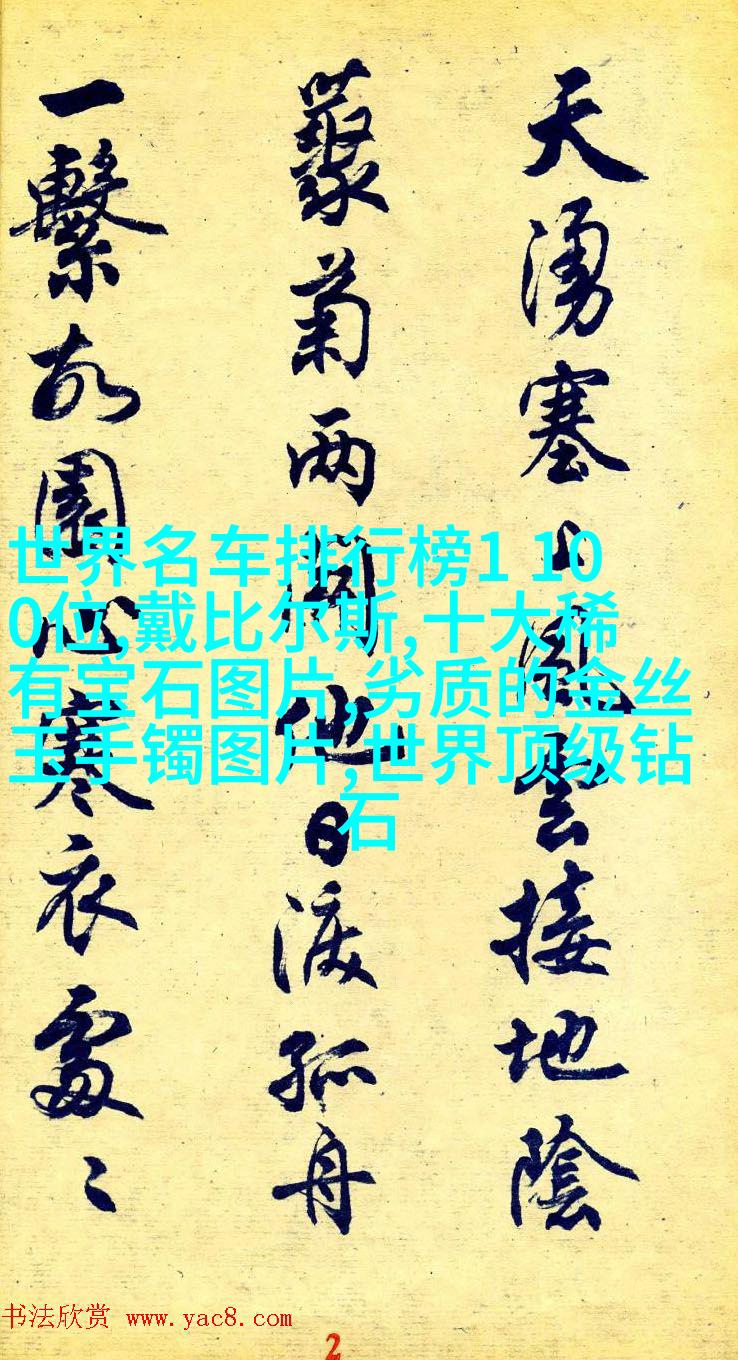 天湧塞上風雲接地陰
藂菊两開他日涙孤舟
一繫故園心寒衣處〻
世界名车排行榜1 10
0位,戴比尔斯,十大稀
有宝石图片,劣质的金丝
玉手镯图片,世界顶级钻
石
书法欣赏 www.yac8.com
2